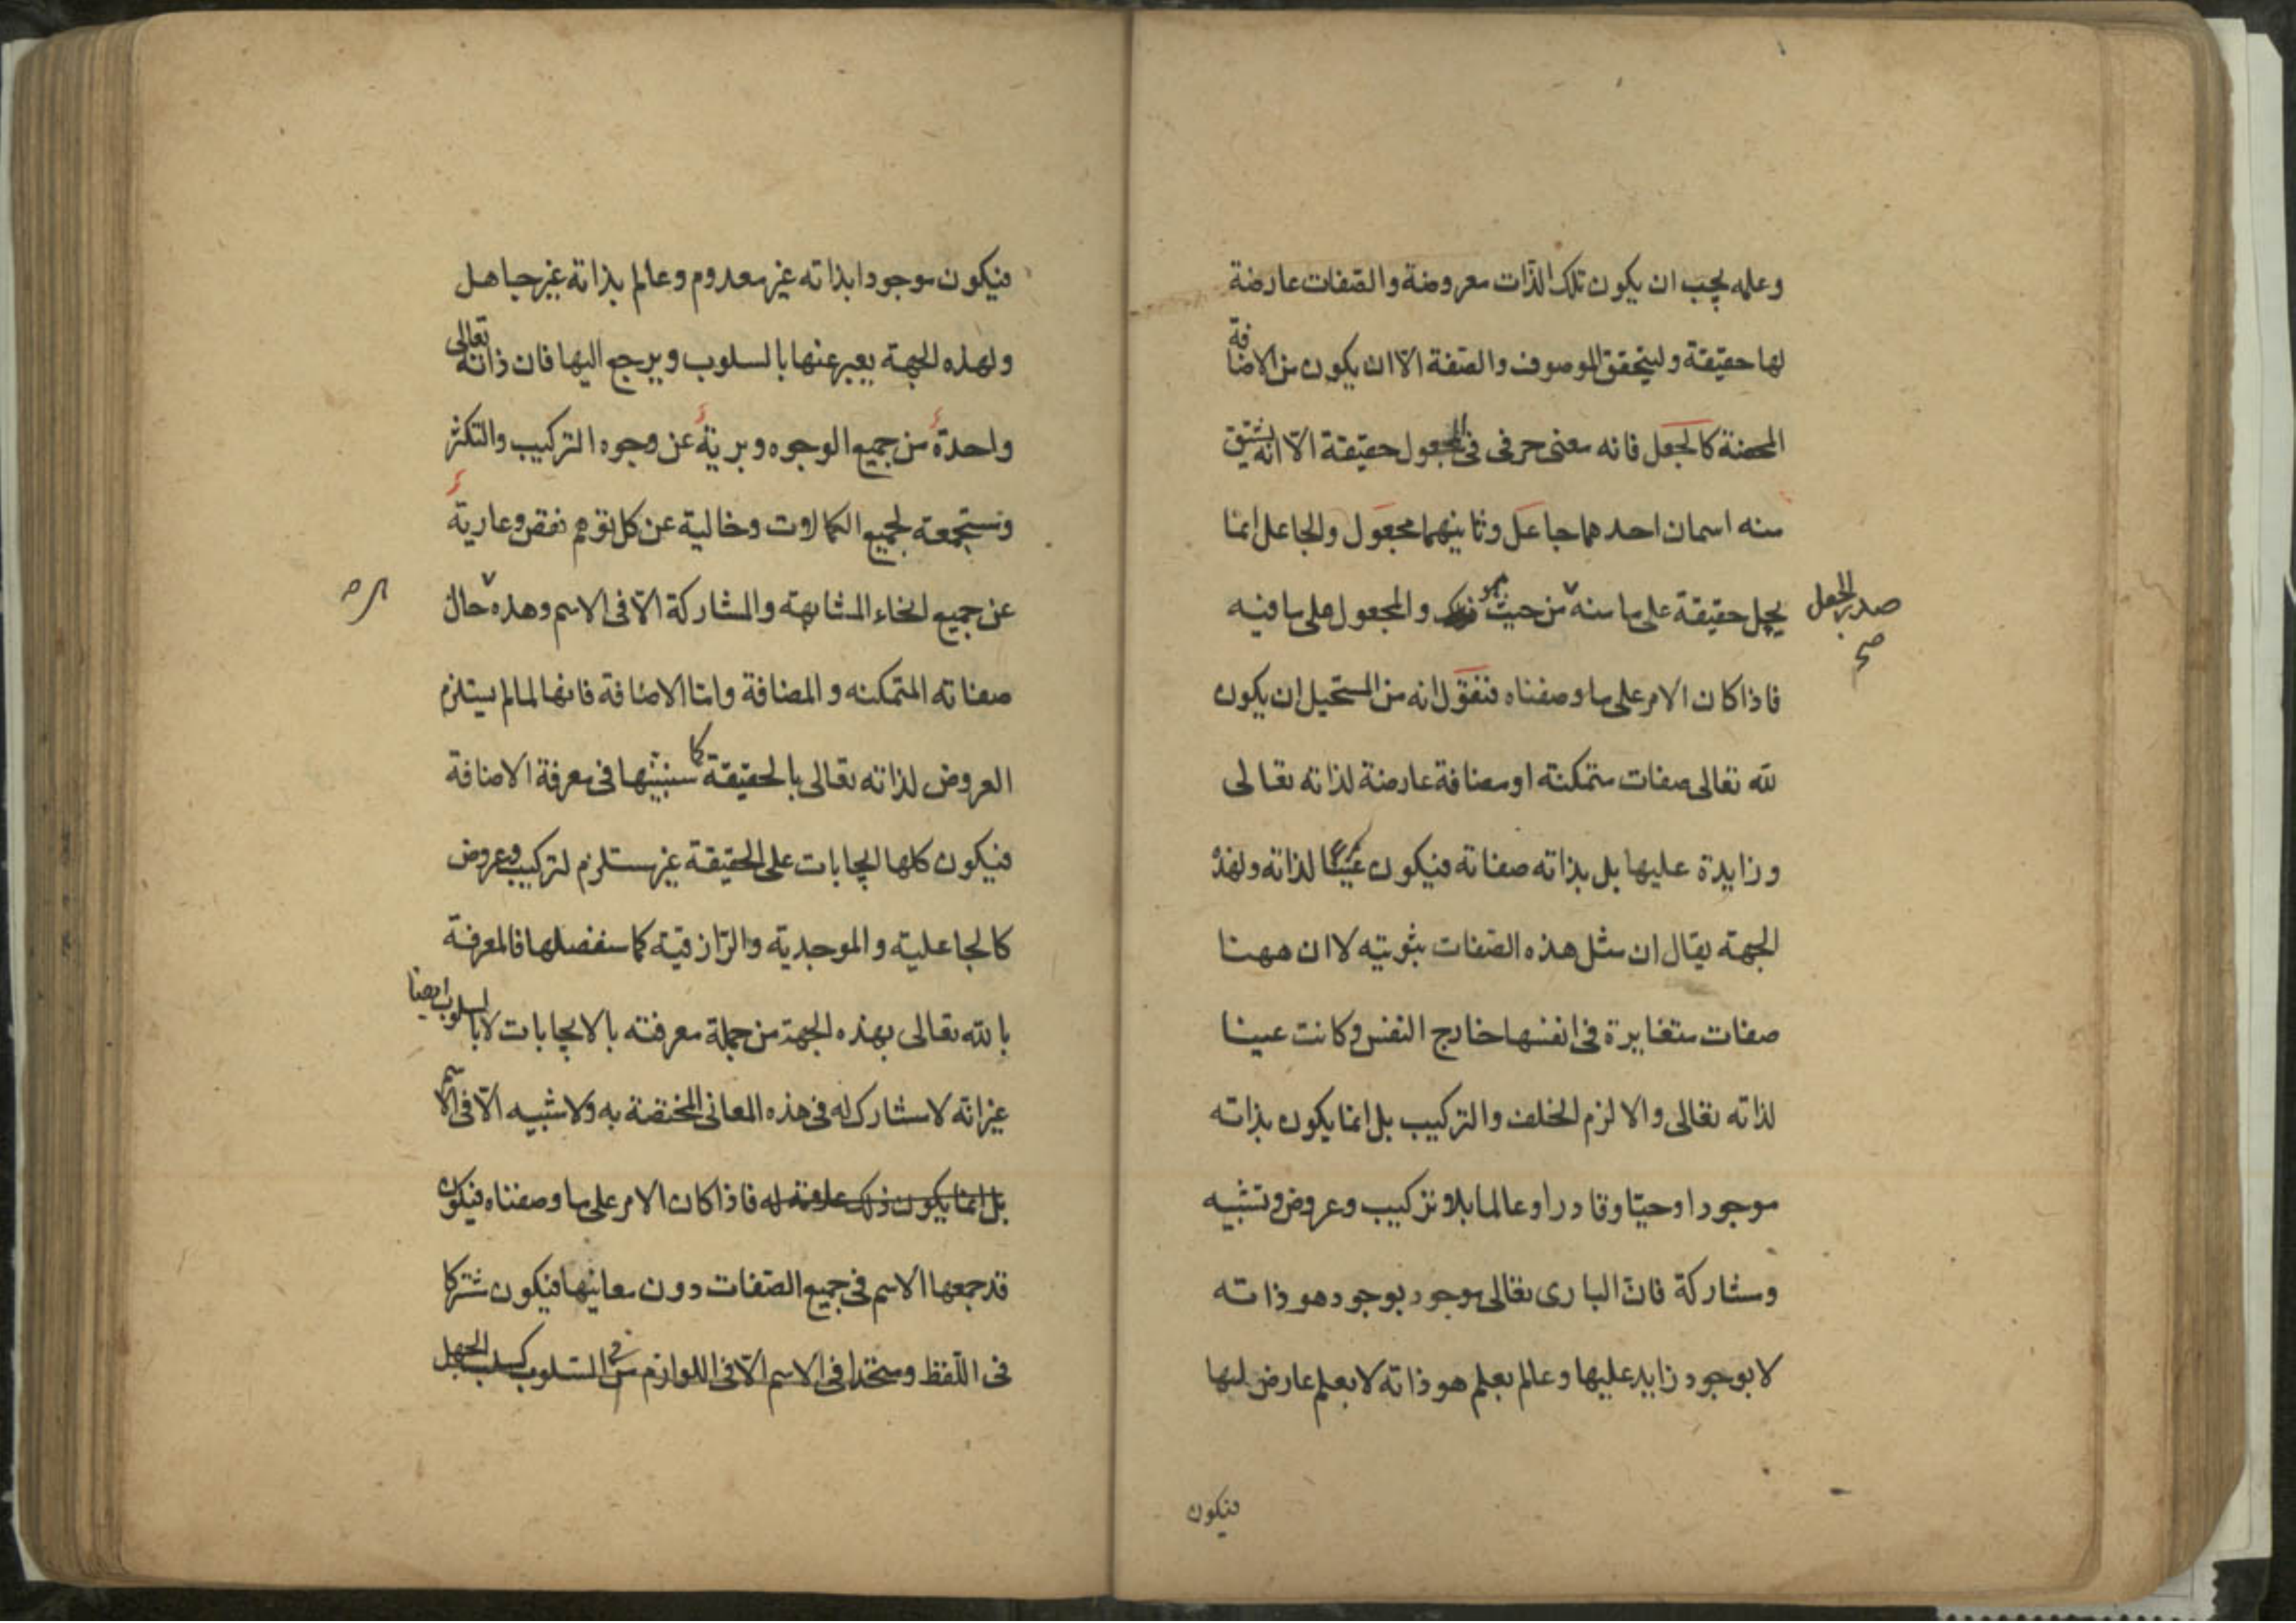 وعلمه يجب ان يكون تلك الذات معروضة والصفات عارضة
لها حقيقة وليتحقق الموصوف والصفة الا ان يكون من الاضافة
المحضة كالجعل فانه معنى حرفى فى المجعول حقيقة الا انه يشتق
منه اسمان احدهما جاعل وثانيهما مجعول والجاعل انما
يحمل حقيقة على ما منه من حيث هو والمجعول على ما فيه
صدر الجعل
صح
فاذا كان الامر على ما وصفناه فنقول انه من المستحيل ان يكون
لله تعالى صفات متمكنة او مضافة عارضة لذاته تعالى
وزايدة عليها بل بذاته صفاته فيكون عينا لذاته ولهذه
الجهة يقال ان مثل هذه الصفات ثبوتيه لا ان ههنا
صفات متغايرة فى انفسها خارج النفس وكانت عينا
لذاته تعالى والا لزم الخلف والتركيب بل انما يكون بذاته
موجودا وحيّا وقادرا وعالما بلا تركيب وعروض وتشبيه
ومشاركة فانّ البارى تعالى موجود بوجود هو ذاته
لا بوجود زايد عليها وعالم بعلم هو ذاته لا بعلم عارض لها
فيكون
فيكون موجودا بذاته غير معدوم وعالم بذاته غير جاهل
ولهذه الجهة يعبر عنها بالسلوب ويرجع اليها فان ذاته تعالى
واحدة من جميع الوجوه وبرية عن وجوه التركيب والتكثر
ومستجمعة لجميع الكمالات وخالية عن كل توهم نقص وعارية
عن جميع انحاء المشابهة والمشاركة الّا فى الاسم وهذه حال
صفاته المتمكنه والمضافة وامّا الاضافة فانها لما لم يستلزم
العروض لذاته تعالى بالحقيقة كما سنبينها فى معرفة الاضافة
فيكون كلها ايجابات على الحقيقة غير مستلزم لتركيب وعروض
كالجاعلية والموجدية والرّازقيّة كما سنفصلها فالمعرفة
بالله تعالى بهذه الجهة من جملة معرفته بالايجابات لا بالسلوب ايضا
غير انّه لا مشارك له فى هذه المعانى المختصة به ولا شبيه الّا فى الاسم
بل انما يكون ذلك علامة له فاذا كان الامر على ما وصفناه فيكون
قد جمعها الاسم فى جميع الصّفات دون معانيها فيكون مشتركا
فى اللّفظ ومتحدا فى الاسم الّا فى اللوازم من السّلوب كسلب الجهل